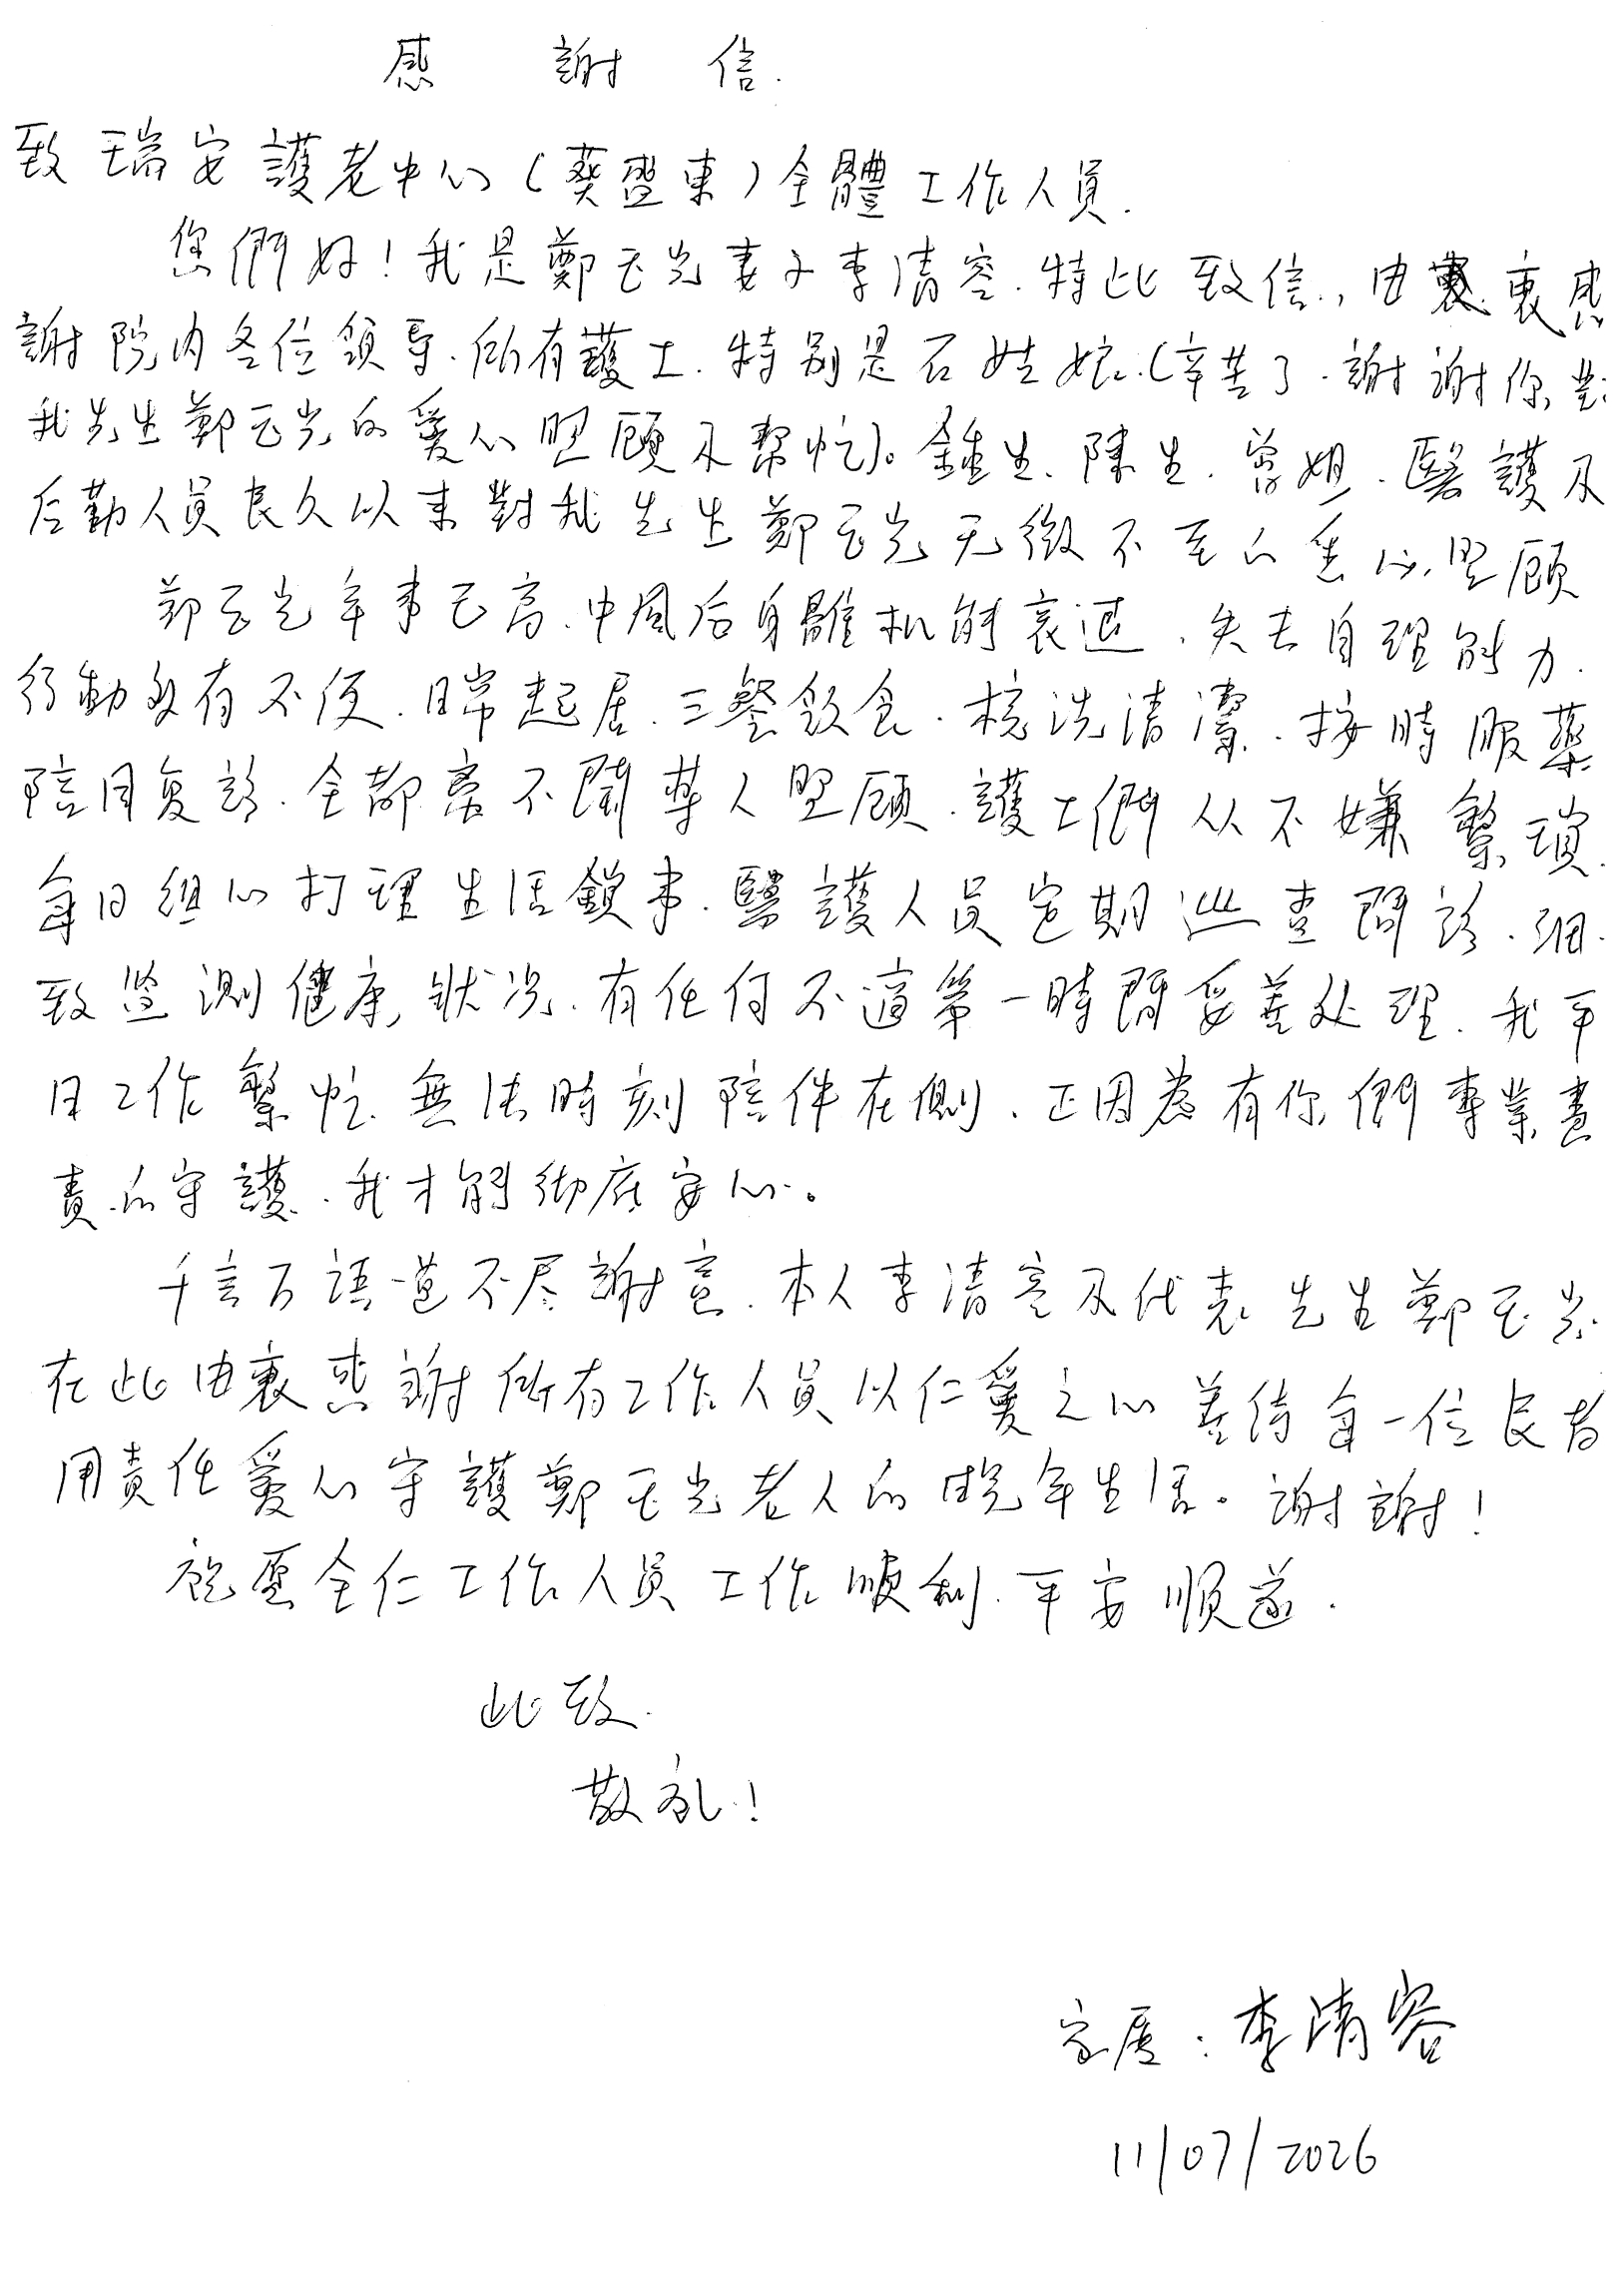 感 謝 信.
致瑞安護老中心(葵盛東)全體工作人員.
您們好!我是鄭玉光妻子李清容.特此致信.,由衷感
謝院内各位領导.所有護士.特别是石姑娘.(辛苦了.謝謝你對
我先生鄭玉光的愛心照顧及幫忙)。鍾生、陳生.曾姐.醫護及
后勤人員長久以来對我先生鄭玉光无微不至的悉心照顧
鄭玉光年事已高.中風后身體机能衰退.失去自理能力.
行動多有不便.日常起居.三餐飲食.梳洗清潔.按時服藥
陪同复診.全都离不開專人照顧.護士們从不嫌繁瑣.
每日細心打理生活鎖事.醫護人員定期巡查問診.細.
致监測健康狀况.有任何不適第一時間妥善处理.我平
日工作繁忙.無法時刻陪伴在側.正因为有你們專業盡
責的守護.我才能彻底安心.。
千言万語道不尽謝意.本人李清容及代表先生鄭玉光
在此由衷感謝所有工作人員以仁愛之心善待每一位長者
用責任愛心守護鄭玉光老人的晚年生活。謝謝!
祝愿全仁工作人員工作順利.平安順遂.
此致.
敬礼!
家属:李清容
11/07/2026